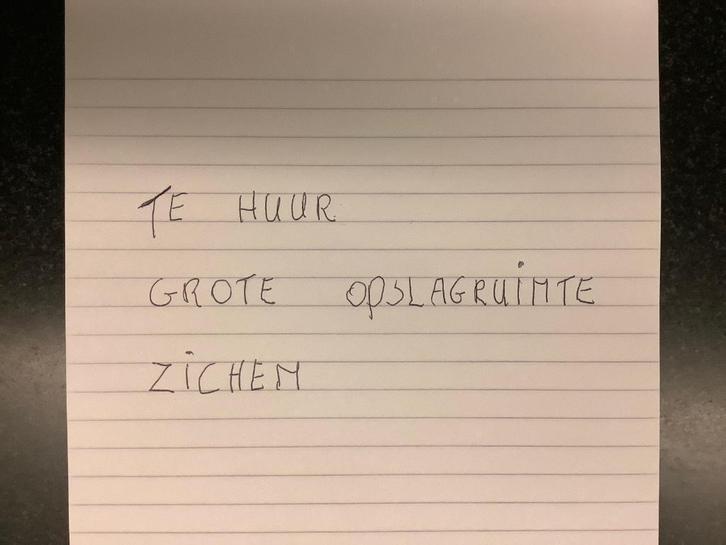 TE HUUR
GROTE OPSLAGRUIMTE
ZICHEM